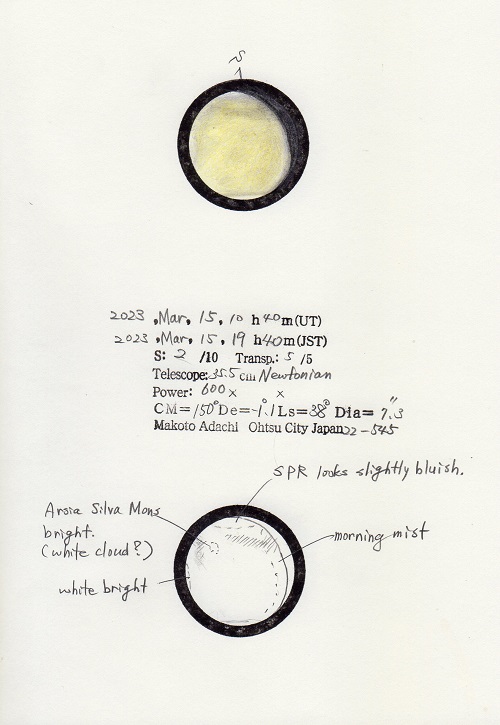 S
2023 ,Mar, 15, 10 h40m(UT)
2023 ,Mar, 15, 19 h40m(JST)
S: 2 /10 Transp.: 5 /5
Telescope: 35.5 cm Newtonian
Power: 600 x x
CM=150° De=-1.1° Ls=38° Dia= 7.3"
Makoto Adachi Ohtsu City Japan 22-545
SPR looks slightly bluish.
Arsia Silva Mons
bright.
(white cloud?)
morning mist
white bright